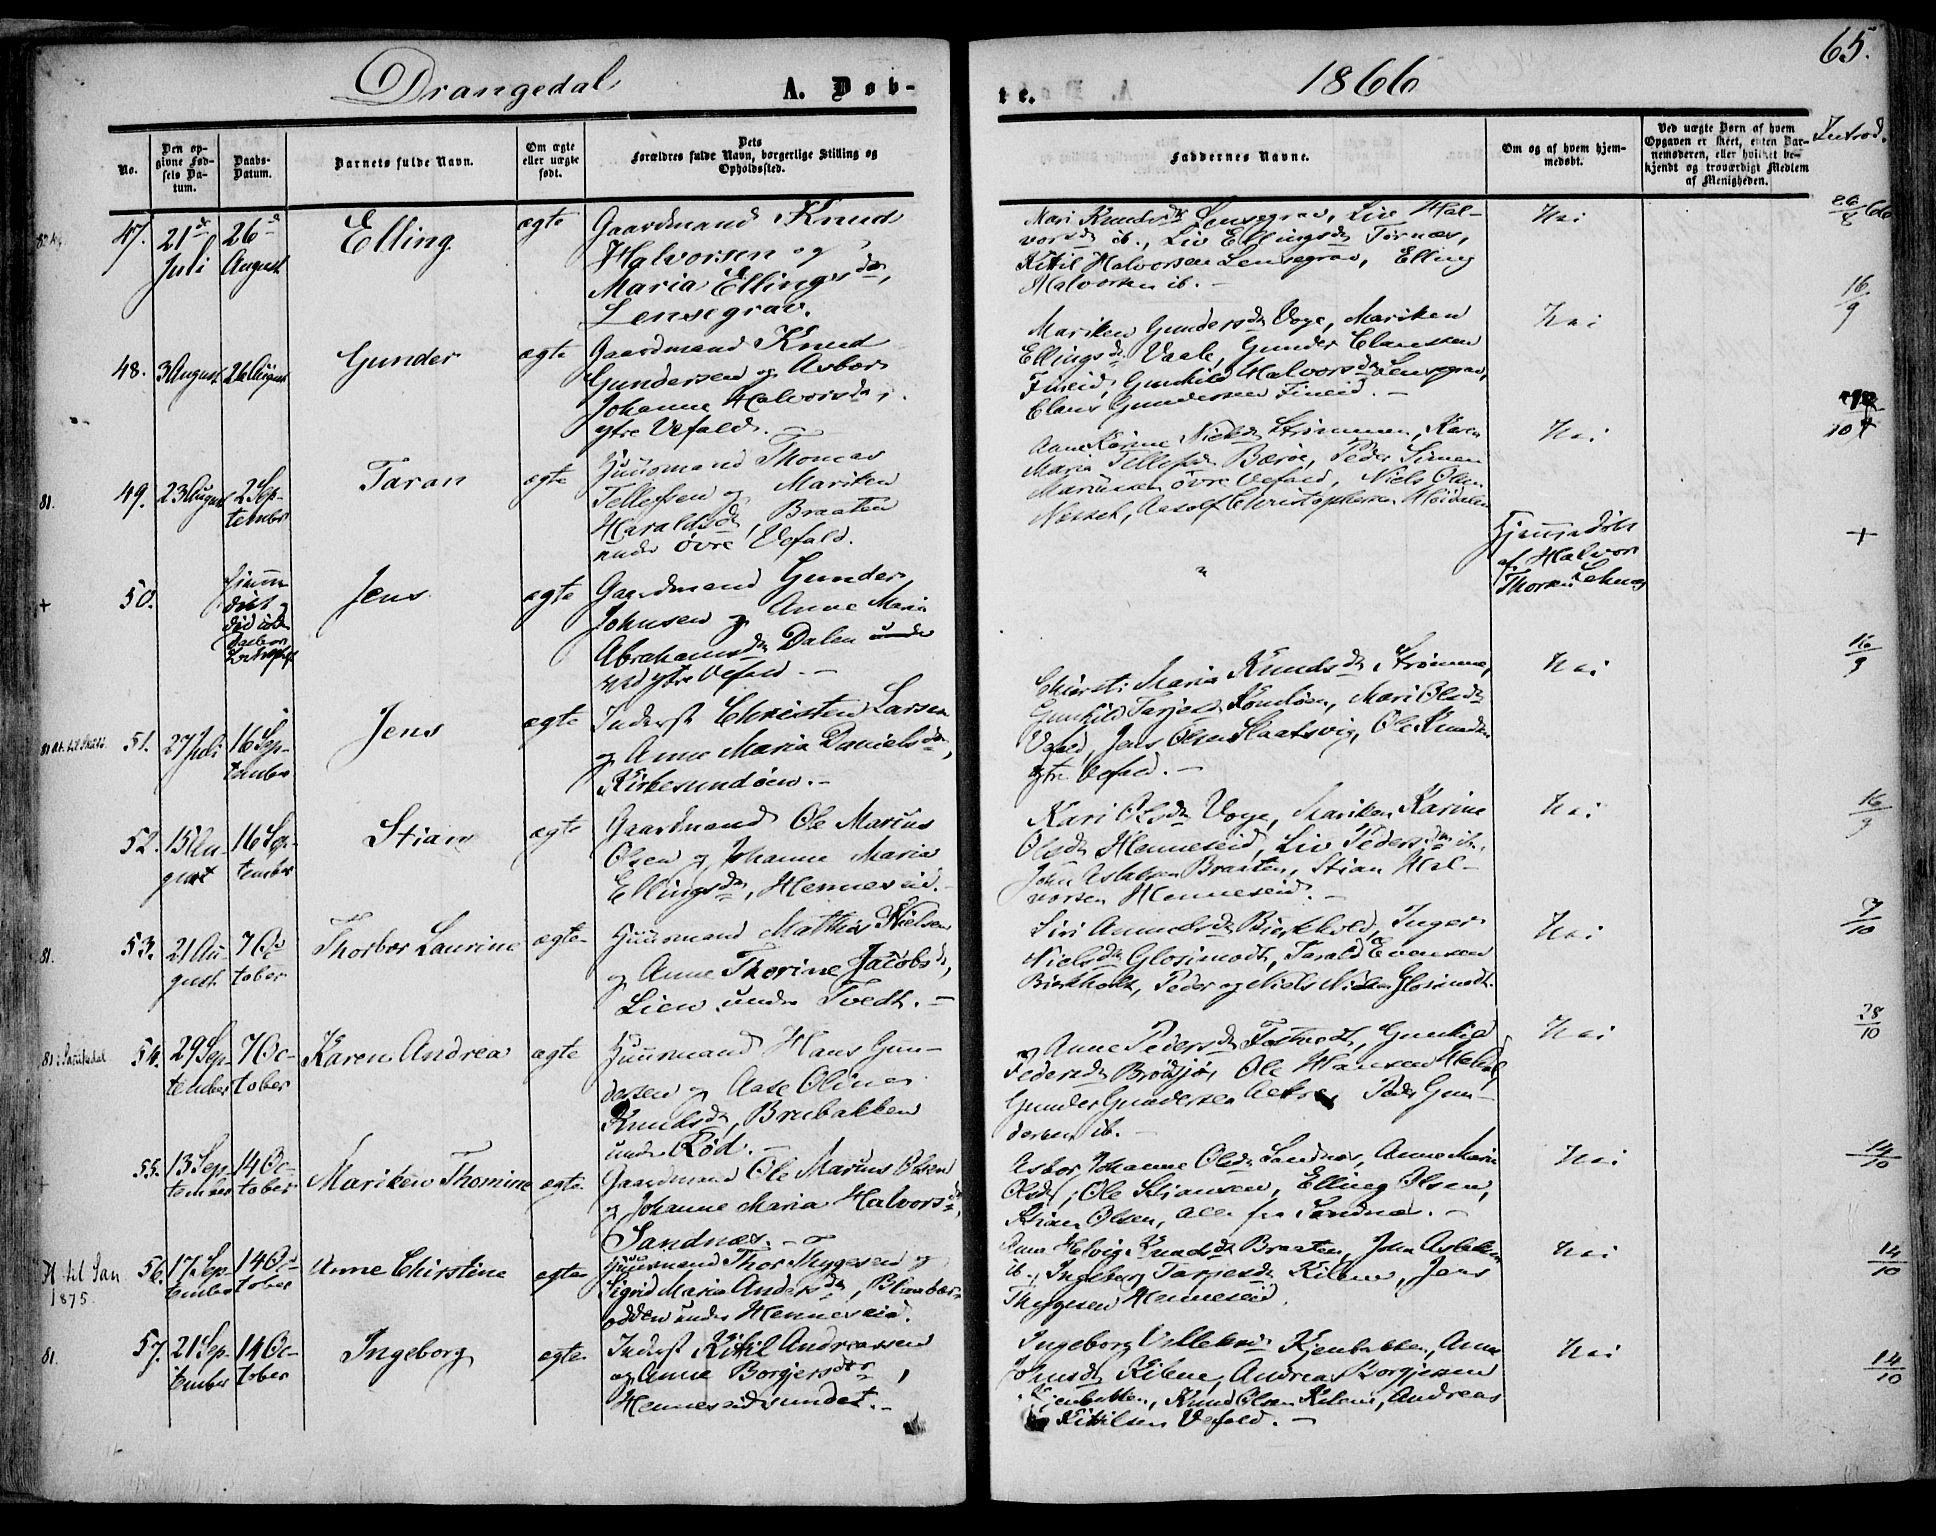 65.
Drangedal
A. Døb-
te.
1866
No.
Den op-
givne Fød-
sels Da-
tum.
Daabs-
Datum.
Barnets fulde Navn.
Om ægte
eller uægte
født.
Dets
Forældres fulde Navn, borgerlige Stilling og
Opholdssted.
Faddernes Navne.
Om og af hvem hjem-
medøbt.
Ved uægte Børn af hvem
Opgaven er skeet, enten Bar-
nemoderen, eller hvilket be-
kjendt og troværdigt Medlem
af Menigheden.
Introd.
47. 21d
Juli
26d
August
Elling
ægte
Gaardmand Knud
Halvorsen og
Maria Ellingsdr,
Lensegrav.
Mari Knudsdr Lensegrav, Liv Hal-
vorsdr ib., Liv Ellingsdr Tørnæs,
Kittil Halvorsen Lensegrav, Elling
Halvorsen ib. -
Nei
26/8 66
48. 3 August
26 August
Gunder
ægte
Gaardmand Knud
Gundersen og Asbor
Johanne Halvorsdr,
ytre Vefald. -
Mariken Gundersdr Voje, Mariken
Ellingsdr Vaale, Gunder Clausen
Fineid, Gunhild Halvorsdr Lensegrav,
Claus Gundersen Fineid. -
Nei
16/9
81.
49. 23 August
2 Sep-
tember
Taran
ægte
Huusmand Thomas
Tellefsen og Mariken
Haraldsdr, Braaten
under øvre Vefald.
Anne Karine Nielsdr Strømmen, Karen
Maria Tellefsdr Bærøe, Peder Simen
øvre Vefald, Niels Olsen
Christophersen
Nei
+
50.
Jens
ægte
Gaardmand Gunder
Johnsen og Anne Maria
Abrahamsdr Dalen under
ytre Vefald. -
"
Hjemmedøbt
af Halvor
Thorsen
+
51. 27 Juli
16 Sep-
tember
Jens
ægte
Inderst Christen Larsen
og Anne Maria Danielsdr,
Kirkesundøen. -
Maria Knudsdr Strømme,
Gunhild Tarjesdr Mari Olsdr
Vefald, Jens Olsen Slaatsvig, Ole Knudsen
ytre Vefald. -
Nei
16/9
52. 15 Au-
gust
16 Sep-
tember
Stian
ægte
Gaardmand Ole Marius
Olsen og Johanne Maria
Ellingsdr, Henneseid. -
Kari Olsdr Voje, Mariken Karine
Olsdr Henneseid, Liv Pedersdr ib.,
John Aslaksen Braaten, Stian Hal-
vorsen Henneseid. -
Nei
16/9
81.
53. 21 Au-
gust
7 Oc-
tober
Thorbor Laurine
ægte
Huusmand Mathias Nielsen
og Anne Thorine Jacobsdr,
Lien under Tvedt. -
Siri Bierkhold, Inger
Nielsdr Glosimodt, Tarald Evensen
Bierkholt, Peder og Niels Nielsen Glosimodt.
Nei
7/10
54. 29 Sep-
tember
7 Oc-
tober
Karen Andrea
ægte
Huusmand Hans Gun-
dersen og Aase Oline
Knudsdr, Brubakken
under Rød. -
og Anne Pedersdr Gunhild
Pedersdr Brødsjø, Ole Hansen
Gunder Gundersen Peder Gun-
dersen ib. -
Nei
28/10
55. 13 Sep-
tember
14 Oc-
tober
Mariken Thomine
ægte
Gaardmand Ole Marius Olsen
og Johanne Maria Halvorsdr,
Sandnæs. -
Asbor Johanne Olsdr Sandnæs, Anne Maria
Olsdr, Ole Stiansen, Elling Olsen,
Stian Olsen, alle fra Sandnæs. -
Nei
14/10
1875.
56. 17 Sep-
tember
14 Oc-
tober
Anne Chirstine
ægte
Huusmand Thor Thygesen og
Sigrid Maria Andersdr, Blaabær-
odden under Henneseid.
Anne Helvig Knudsdr Braaten, John Aslaksen
ib., Ingeborg Tarjesdr Kilene, Jens
Thygesen Henneseid.
Nei
14/10
81.
57. 21 Sep-
tember
14 Oc-
tober
Ingeborg
ægte
Inderst Kittil Andreassen
og Anne Borgersdtr,
Henneseidsundet. -
Ingeborg Anne
Johnsdr Kilene, Andreas Borgersen
Knud Olsen Kilene, Andreas
Kittilsen Vefald. -
Nei
14/10